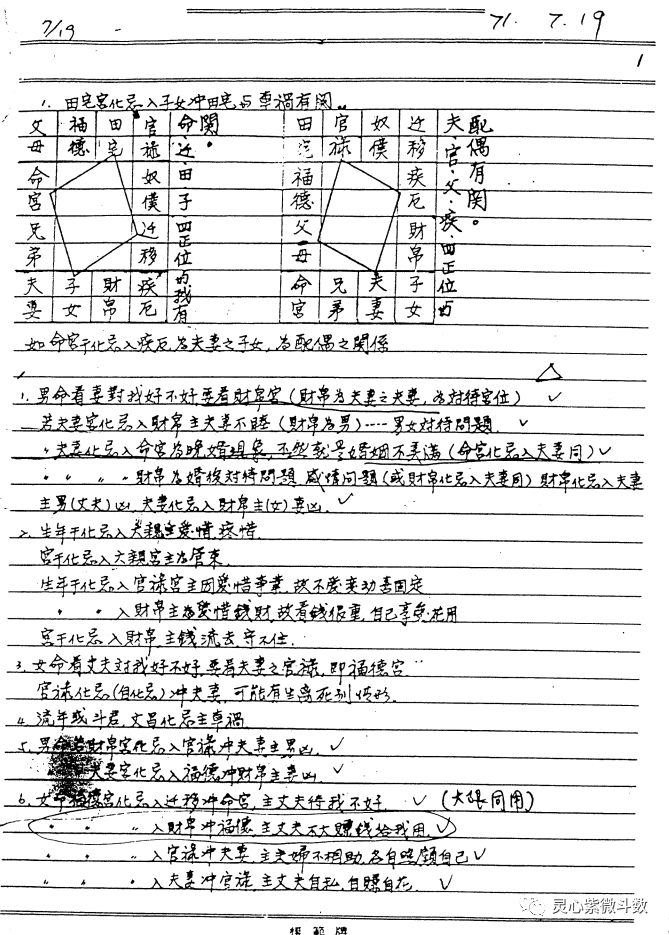 7/19
71. 7. 19
1
1. 田宅宮化忌入子女冲田宅与車禍有関。
父母 福德 田宅 官祿
命宮 奴僕
兄弟 迁移
夫妻 子女 財帛 疾厄
命、迁、田、子、四正位为我有関。
田宅 官祿 奴僕 迁移
福德 疾厄
父母 財帛
命宮 兄弟 夫妻 子女
夫、官、父、疾、四正位与配偶有関。
如命宮干化忌入疾厄为夫妻之子女,为配偶之関係
1. 男命看妻對我好不好要看財帛宮(財帛为夫妻之夫妻,为対待宮位) ✓
若夫妻宮化忌入財帛主夫妻不睦(財帛为男)----男女対待問題. ✓
〃夫妻化忌入命宮为晚婚現象,不然就是婚姻不美滿(命宮化忌入夫妻同) ✓
〃 〃 〃 〃 財帛为婚後対待問題,感情問題(或財帛化忌入夫妻同)財帛化忌入夫妻
主男(丈夫)凶,夫妻化忌入財帛主(女)妻凶. ✓
2. 生年干化忌入六親主愛惜,疼惜.
宮干化忌入六親宮主为管束.
生年干化忌入官祿宮主因愛惜事業,故不愛変动喜固定
〃 〃 入財帛主为愛惜錢財,故看錢很重,自己享受花用
宮干化忌入財帛主錢流去守不住.
3. 女命看丈夫対我好不好,要看夫妻之官祿,即福德宮
官祿化忌(自化忌)冲夫妻,可能有生离死别情形.
4. 流年或斗君,文昌化忌主車禍.
5. 男命若財帛宮化忌入官祿冲夫妻主男凶. ✓
夫妻宮化忌入福德冲財帛主妻凶. ✓
6. 女命福德宮化忌入迁移冲命宮,主丈夫待我不好. ✓ (大限同用)
〃 〃 〃 入財帛冲福德,主丈夫不太賺錢給我用. ✓
〃 〃 〃 入官祿冲夫妻,主夫婦不相助,各自照顧自己 ✓
〃 〃 〃 入夫妻冲官祿,主丈夫自私,自賺自花. ✓
灵心紫微斗数
模範牌